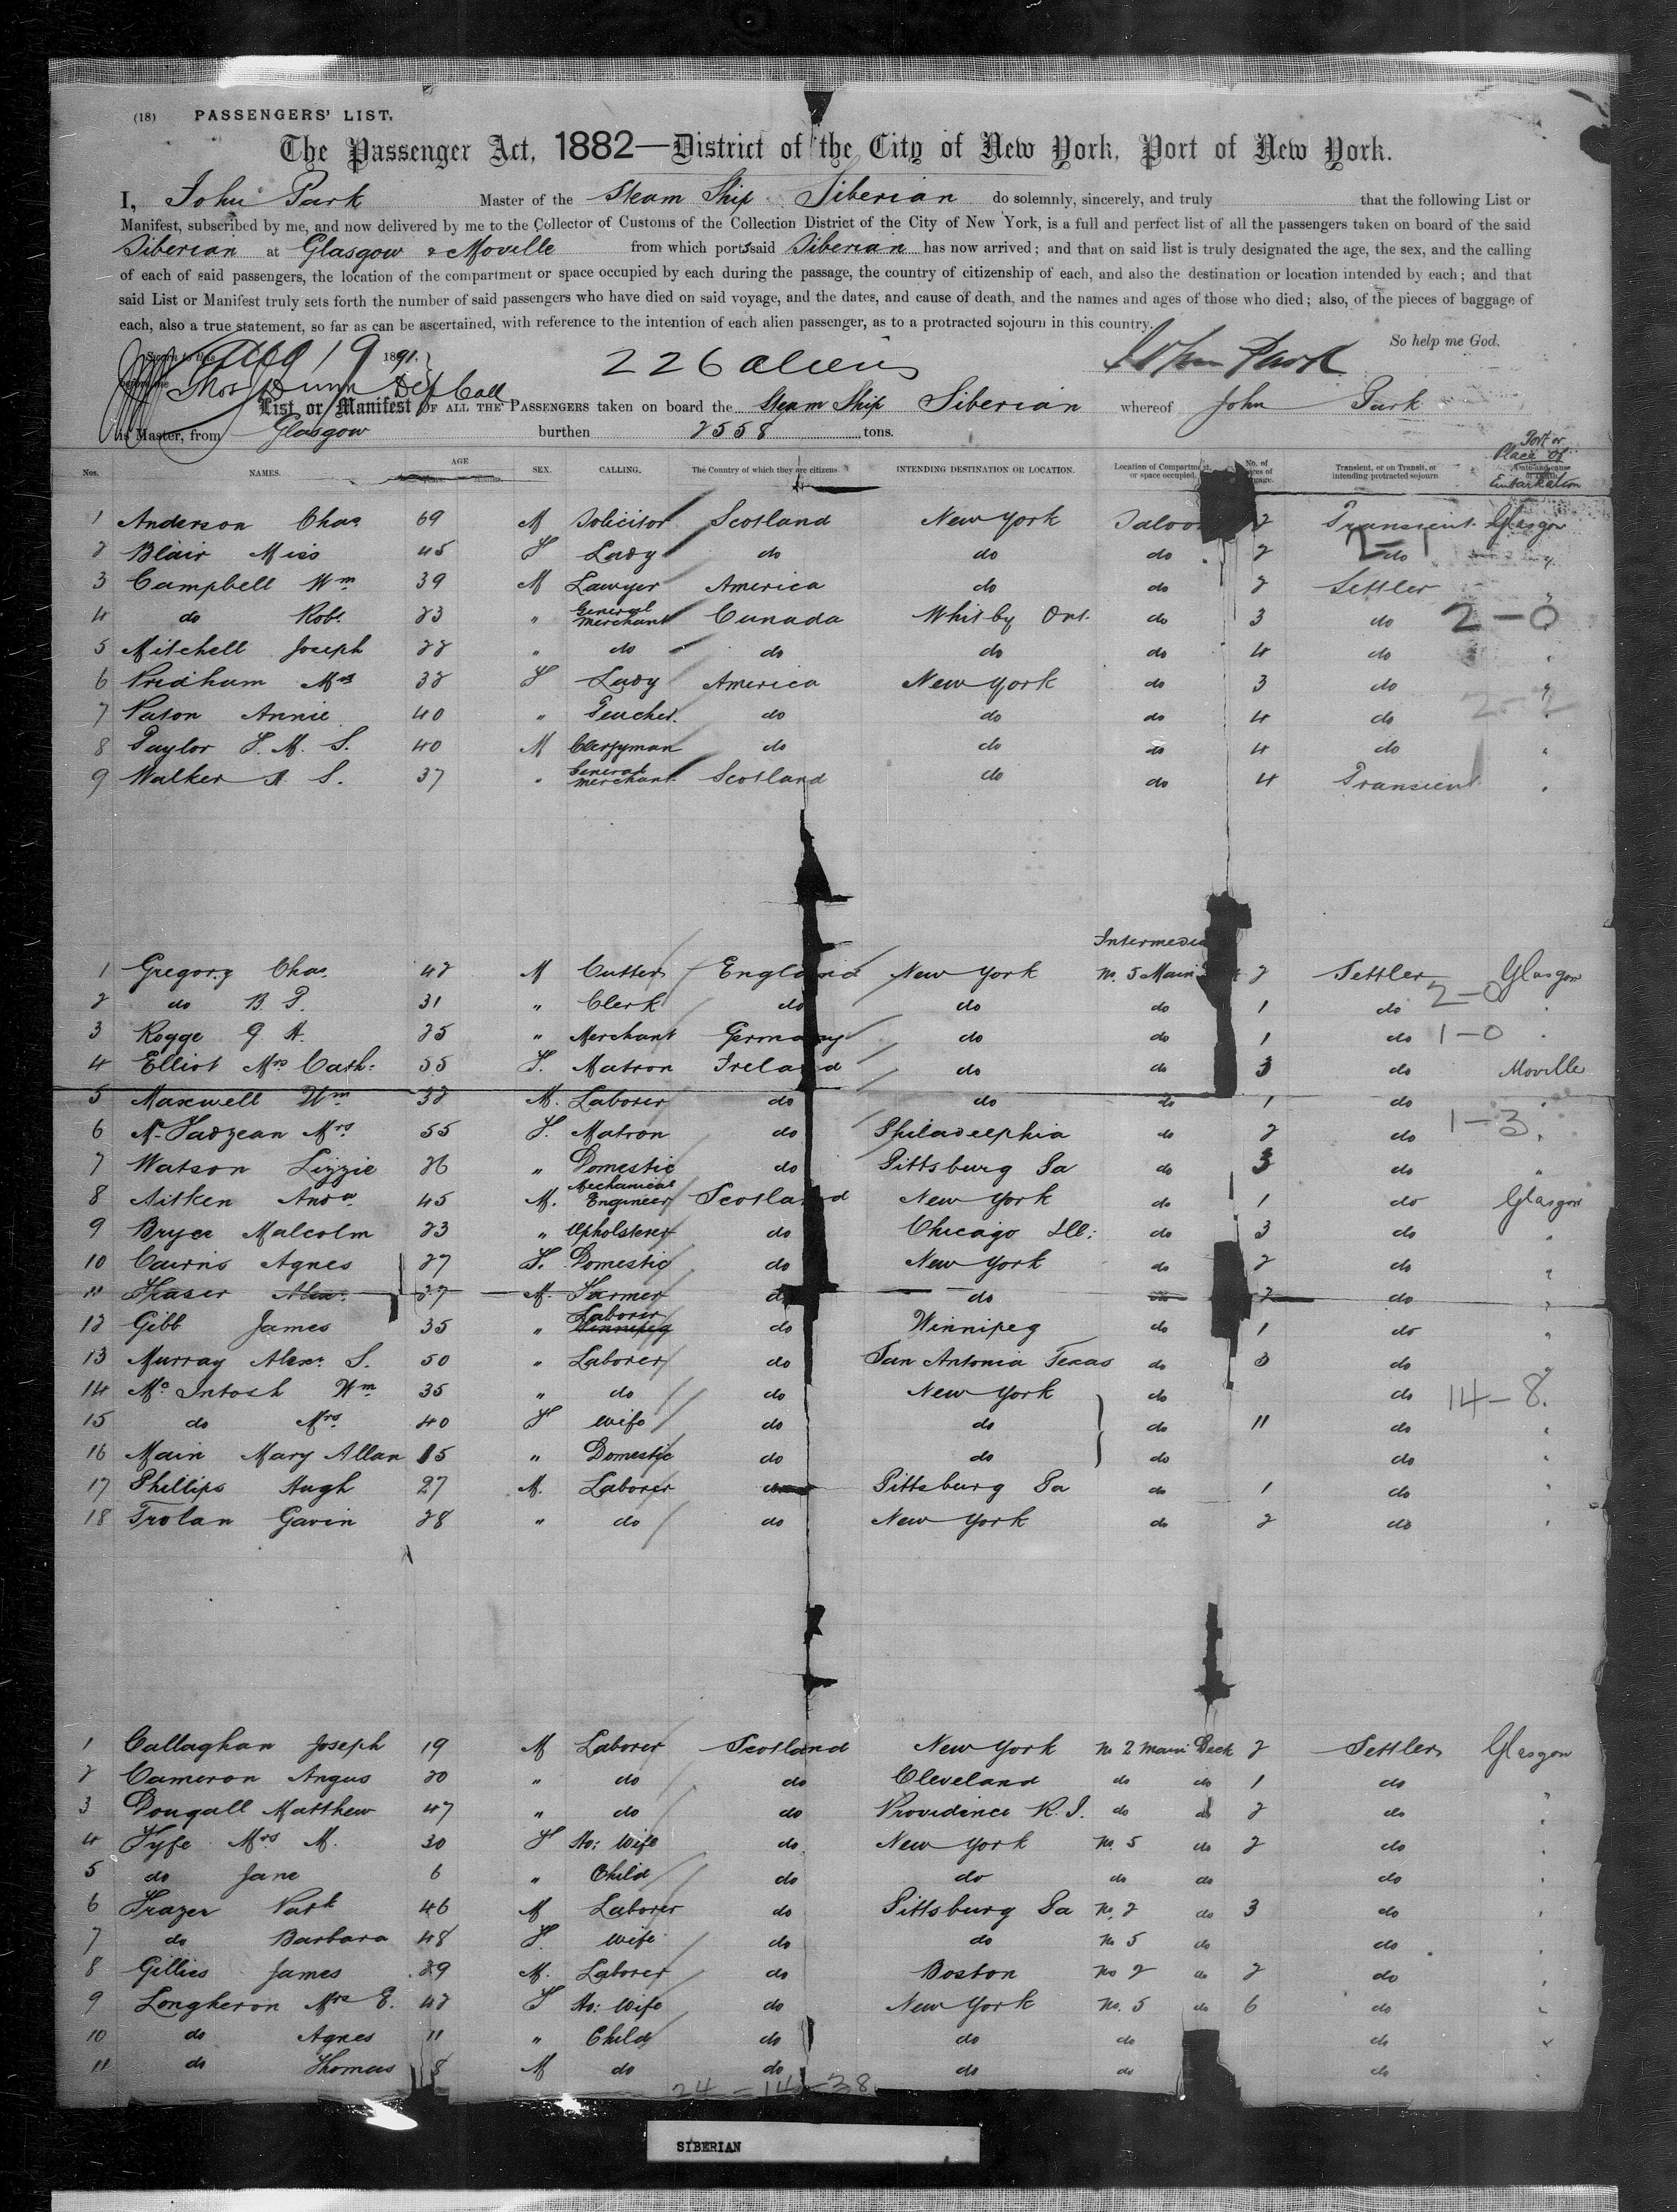 (18) PASSENGERS' LIST.
The Passenger Act, 1882—District of the City of New York, Port of New York.
I, John Park Master of the Steam Ship Siberian do solemnly, sincerely, and truly that the following List or
Manifest, subscribed by me, and now delivered by me to the Collector of Customs of the Collection District of the City of New York, is a full and perfect list of all the passengers taken on board of the said
Siberian at Glasgow & Moville from which ports said Siberian has now arrived; and that on said list is truly designated the age, the sex, and the calling
of each of said passengers, the location of the compartment or space occupied by each during the passage, the country of citizenship of each, and also the destination or location intended by each; and that
said List or Manifest truly sets forth the number of said passengers who have died on said voyage, and the dates, and cause of death, and the names and ages of those who died; also, of the pieces of baggage of
each, also a true statement, so far as can be ascertained, with reference to the intention of each alien passenger, as to a protracted sojourn in this country.
So help me God.
Sworn to this 19 1891.
226 aliens
John Park
Thos Dunn Dep Coll
List or Manifest OF ALL THE PASSENGERS taken on board the Steam Ship Siberian whereof John Park
is Master, from Glasgow burthen 2558 tons.
Port or Place of Embarkation
Nos. NAMES. AGE SEX. CALLING. The Country of which they are citizens. INTENDING DESTINATION OR LOCATION. Location of Compartment or space occupied. No. of Transient, or on Transit, or intending protracted sojourn
1 Anderson Chas 69 M Solicitor Scotland New York Saloon 2 Transient Glasgow
2 Blair Miss 45 F Lady do do do 2 do "
3 Campbell Wm 39 M Lawyer America do do 2 Settler "
4 do Robt 23 " General Merchant Canada Whitby Ont. do 3 do 2-0
5 Mitchell Joseph 22 " do do do do 4 do "
6 Pridham Mrs 32 F Lady America New York do 3 do "
7 Paton Annie 40 " Teacher do do do 4 do 2-2 "
8 Taylor F. M. S. 40 M Clergyman do do do 4 do "
9 Walker A. S. 37 " General Merchant Scotland do do 4 Transient "
Intermediate
1 Gregory Chas 42 M Cutter England New York No. 5 Main 2 Settler Glasgow
2 do B P. 31 " Clerk do do do 1 do 2-0 "
3 Rogge G A. 25 " Merchant Germany do do 1 do 1-0 "
4 Elliot Mrs Cath: 55 F. Matron Ireland do do 3 do Moville
5 Maxwell Wm 32 M. Laborer do do do 1 do "
6 Mrs. 55 F. Matron do Philadelphia do 2 do 1-3 "
7 Watson Lizzie 26 " Domestic do Pittsburg Pa do 3 do "
8 Aitken Andw. 45 M. Mechanical Engineer Scotland New York do 1 do Glasgow
9 Bryce Malcolm 23 " Upholsterer do Chicago Ill: do 3 do "
10 Cairns Agnes 27 F. Domestic do New York do 2 do "
11 Fraser Alex. 27 M. Farmer do do do 2 do "
12 Gibb James 35 " Laborer Winnipeg do Winnipeg do 1 do "
13 Murray Alexr. S. 50 " Laborer do San Antonia Texas do 3 do "
14 Mc Intosh Wm 35 " do do New York do do 14-8.
15 do Mrs 40 F Wife do do do 11 do "
16 Main Mary Allan 15 " Domestic do do do do "
17 Phillips Hugh 27 M. Laborer do Pittsburg Pa do 1 do "
18 Trolan Gavin 28 " do do New York do 2 do "
1 Callaghan Joseph 19 M Laborer Scotland New York No 2 Main Deck 2 Settler Glasgow
2 Cameron Angus 20 " do do Cleveland do do 1 do "
3 Dougall Matthew 47 " do do Providence R. I. do do 2 do "
4 Fyfe Mrs M. 30 F Ho: Wife do New York No. 5 do 2 do "
5 do Jane 6 " Child do do do do do "
6 Frazer Patk 46 M Laborer do Pittsburg Pa No. 2 do 3 do "
7 do Barbara 48 F. Wife do do No 5 do do "
8 Gillies James 29 M. Laborer do Boston No 2 do 2 do "
9 Longheron Mrs E. 42 F Ho: Wife do New York No. 5 do 6 do "
10 do Agnes 11 " Child do do do do "
11 do Thomas 8 M do do do do do
24 - 14 - 38
SIBERIAN